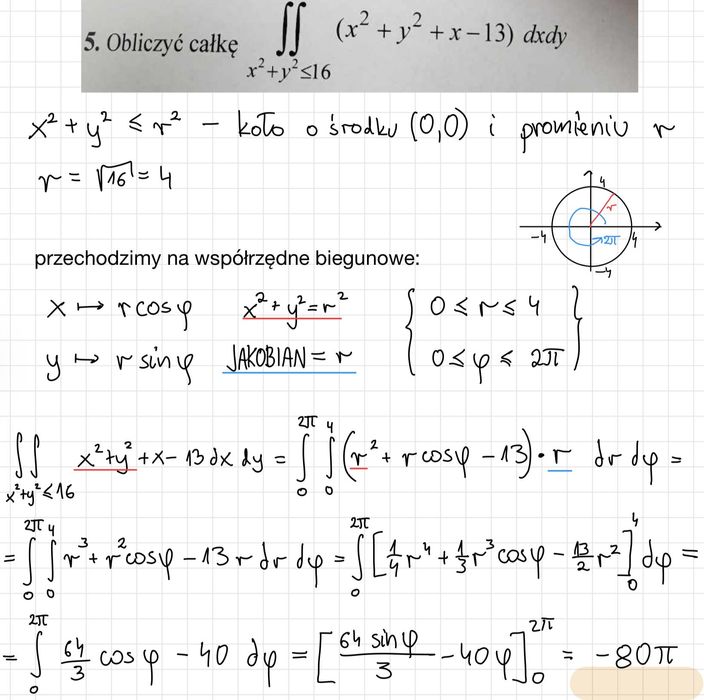 5. Obliczyć całkę ∬ (x² + y² + x − 13) dxdy
x²+y²≤16
x² + y² ≤ r² – koło o środku (0,0) i promieniu r
r = √16 = 4
4
r
-4 2π 4
-4
przechodzimy na współrzędne biegunowe:
x ↦ r cos φ x² + y² = r² { 0 ≤ r ≤ 4 }
y ↦ r sin φ JAKOBIAN = r { 0 ≤ φ ≤ 2π }
∬_{x²+y²≤16} x²+y²+x−13 dx dy = ∫₀^{2π} ∫₀^{4} (r² + r cos φ − 13)·r dr dφ =
= ∫₀^{2π} ∫₀^{4} r³ + r² cos φ − 13 r dr dφ = ∫₀^{2π} [¼ r⁴ + ⅓ r³ cos φ − 13/2 r²]₀⁴ dφ =
= ∫₀^{2π} 64/3 cos φ − 40 dφ = [64 sin φ / 3 − 40 φ]₀^{2π} = −80π